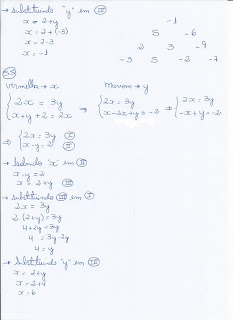 → substituindo "y" em II
x = 2+y
x = 2+(-3)
x = 2-3
x = -1
-1
5 -6
2 3 -9
-3 5 -2 -7
55
vermelha → x marrom → y
{2x = 3y ⇒ {2x = 3y ⇒ {2x = 3y
{x+y+2 = 2x {x-2x+y = -2 {-x+y = -2
⇒ {2x = 3y I
{x-y = 2 II
→ isolando "x" em II
x-y = 2
x = 2+y III
→ substituindo III em I
2x = 3y
2.(2+y) = 3y
4+2y = 3y
4 = 3y-2y
4 = y
→ Substituindo "y" em III
x = 2+y
x = 2+4
x = 6